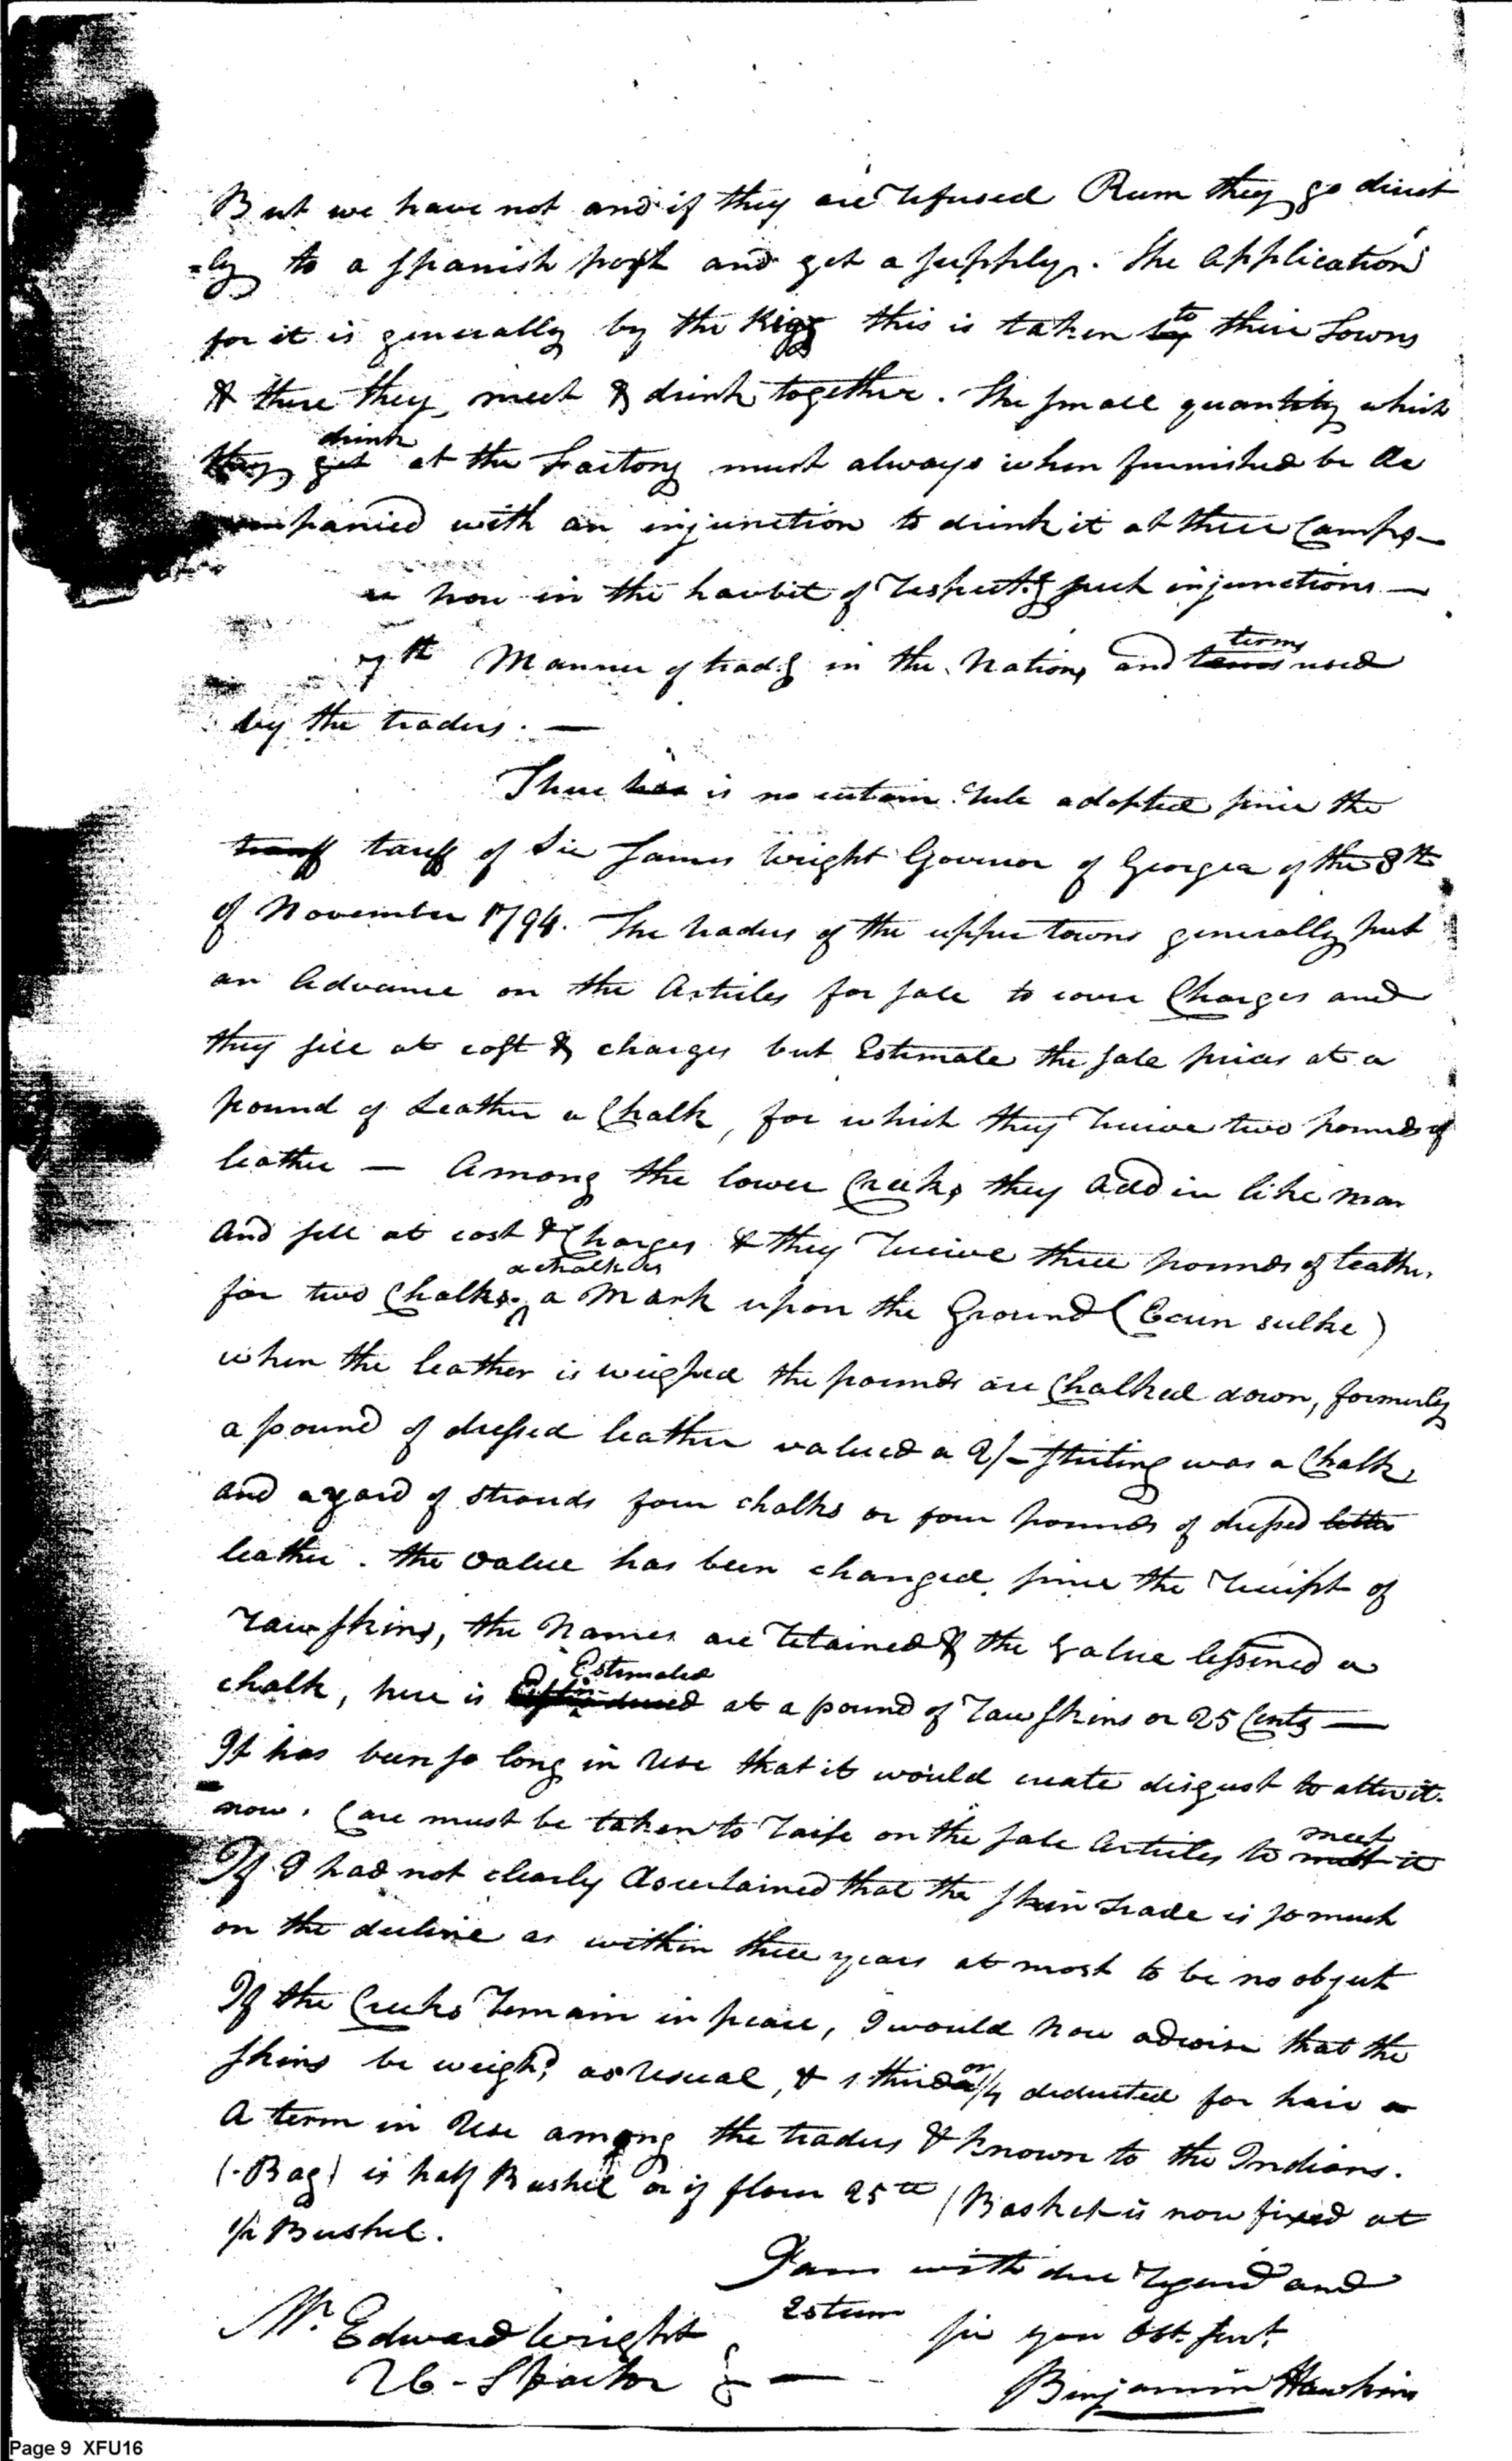 But we have not and if they are refused Rum they go direct
=ly to a Spanish post and get a supply. The application
for it is generally by the King this is taken to their Towns
& there they meet & drink together. The small quantity which
they drink at the Factory must always when furnished be Ac
companied with an injunction to drink it at their Camps—
now in the haubit of respectg such injunctions —
7th Manner of tradg in the Nation, and terms used
by the traders. —
There is no certain rule adopted since the
tariff of Sir James Wright Govenor of Georgia of the 8th
of November 1794. The traders of the upper towns generally put
an Advance on the Articles for sale to cover Charges and
they sell at cost & charges but Estimate the sale prices at a
pound of Leather a Chalk, for which they receive two pounds of
leather — Among the lower Creeks they add in like man
And sell at cost & Charges & they receive three pounds of leather
for two Chalks. a chalk is a Mark upon the Ground (Ecun sulke)
when the leather is weighed the pounds are Chalked down, formerly
a pound of dressed leather valued a 2/– sterling was a Chalk,
and a yard of strouds four chalks or four pounds of dressed letter
leather. the value has been changed, since the receipt of
raw skins, the Names are retained & the value lessened a
chalk, here is Estimated at a pound of raw skins or 25 Cents —
It has been so long in use that it would create disgust to alter it.
now. Care must be taken to raise on the sale Articles to meet it
If I had not clearly Ascertained that the skin trade is so much
on the decline as within three years at most to be no object
If the Creeks remain in peace, I would now advise that the
skins be weighd as usual, & 1 third or 1/4 deducted for hair
A term in use among the traders & known to the Indians.
(Bag) is half Bushel or if flour 25 (Basket is now fixed at
1/2 Bushel.
I am with due regard and
Esteem
Sir your Obt. Sevt.
Mr. Edward Wright
U S Factor } —
Benjamin Hawkins
Page 9 XFU16